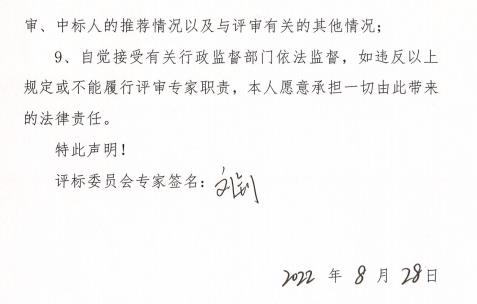 审、中标人的推荐情况以及与评审有关的其他情况；
9、自觉接受有关行政监督部门依法监督，如违反以上
规定或不能履行评审专家职责，本人愿意承担一切由此带来
的法律责任。
特此声明！
评标委员会专家签名：
2022 年 8 月 28日